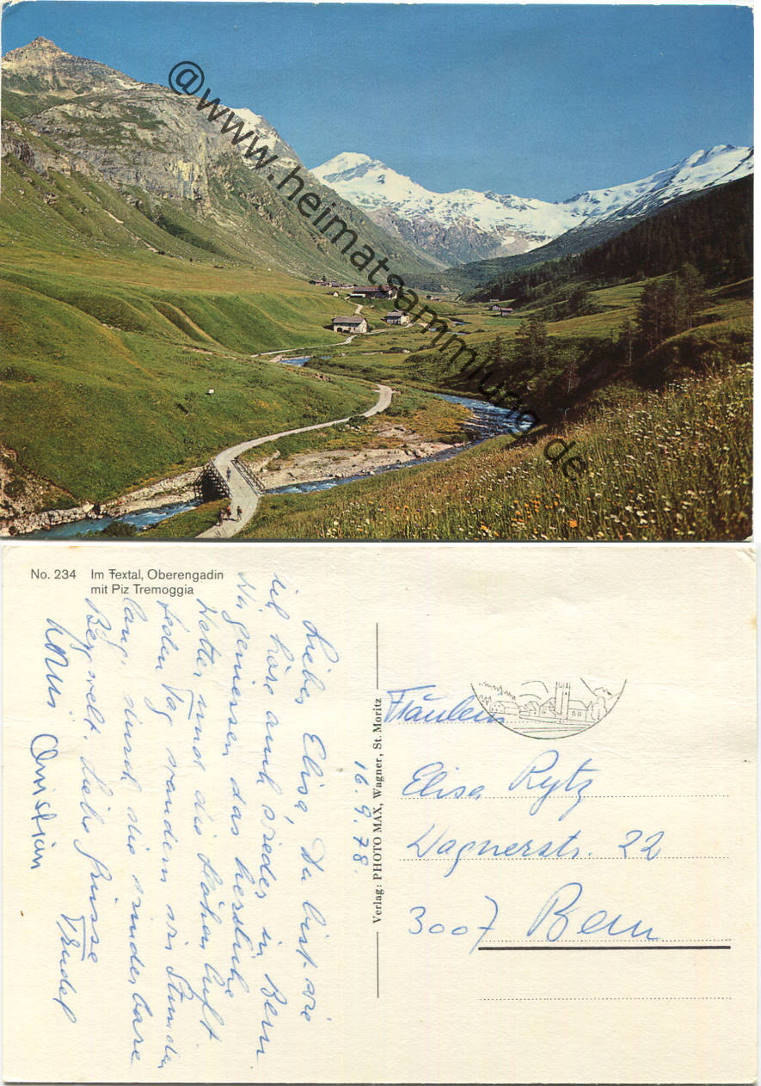 @www.heimatsammlung.de
No. 234 Im Fextal, Oberengadin
mit Piz Tremoggia
Liebe Elisa, Du bist wie
ich höre auch wieder in Bern.
Wir geniessen das herrliche
Wetter und die Höhenluft.
Jeden Tag wandern wir Stunden
lang durch die wunderbare
Bergwelt. Liebe Grüsse
Trudel
Christian
16. 9. 78.
Verlag: PHOTO MAX, Wagner, St. Moritz
Fräulein
Elisa Rytz
Wagnerstr. 22
3007 Bern